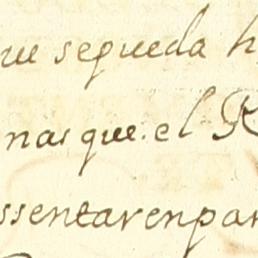 ue sequeda h
nas que. el R
ssentarenpar